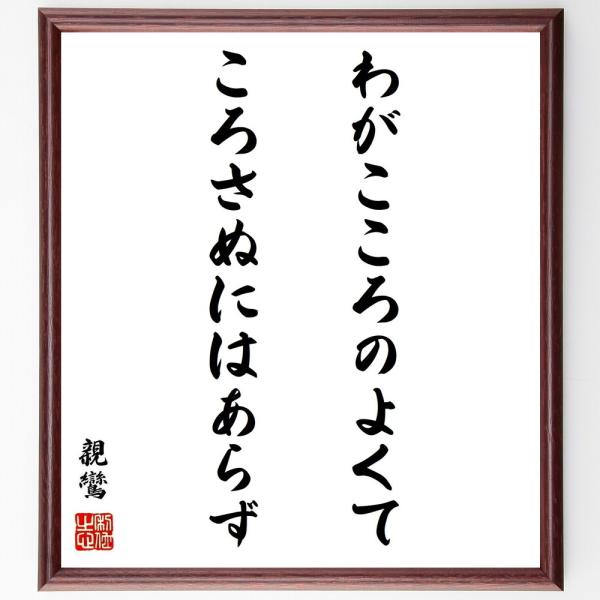 わがこころのよくて
ころさぬにはあらず
親鸞